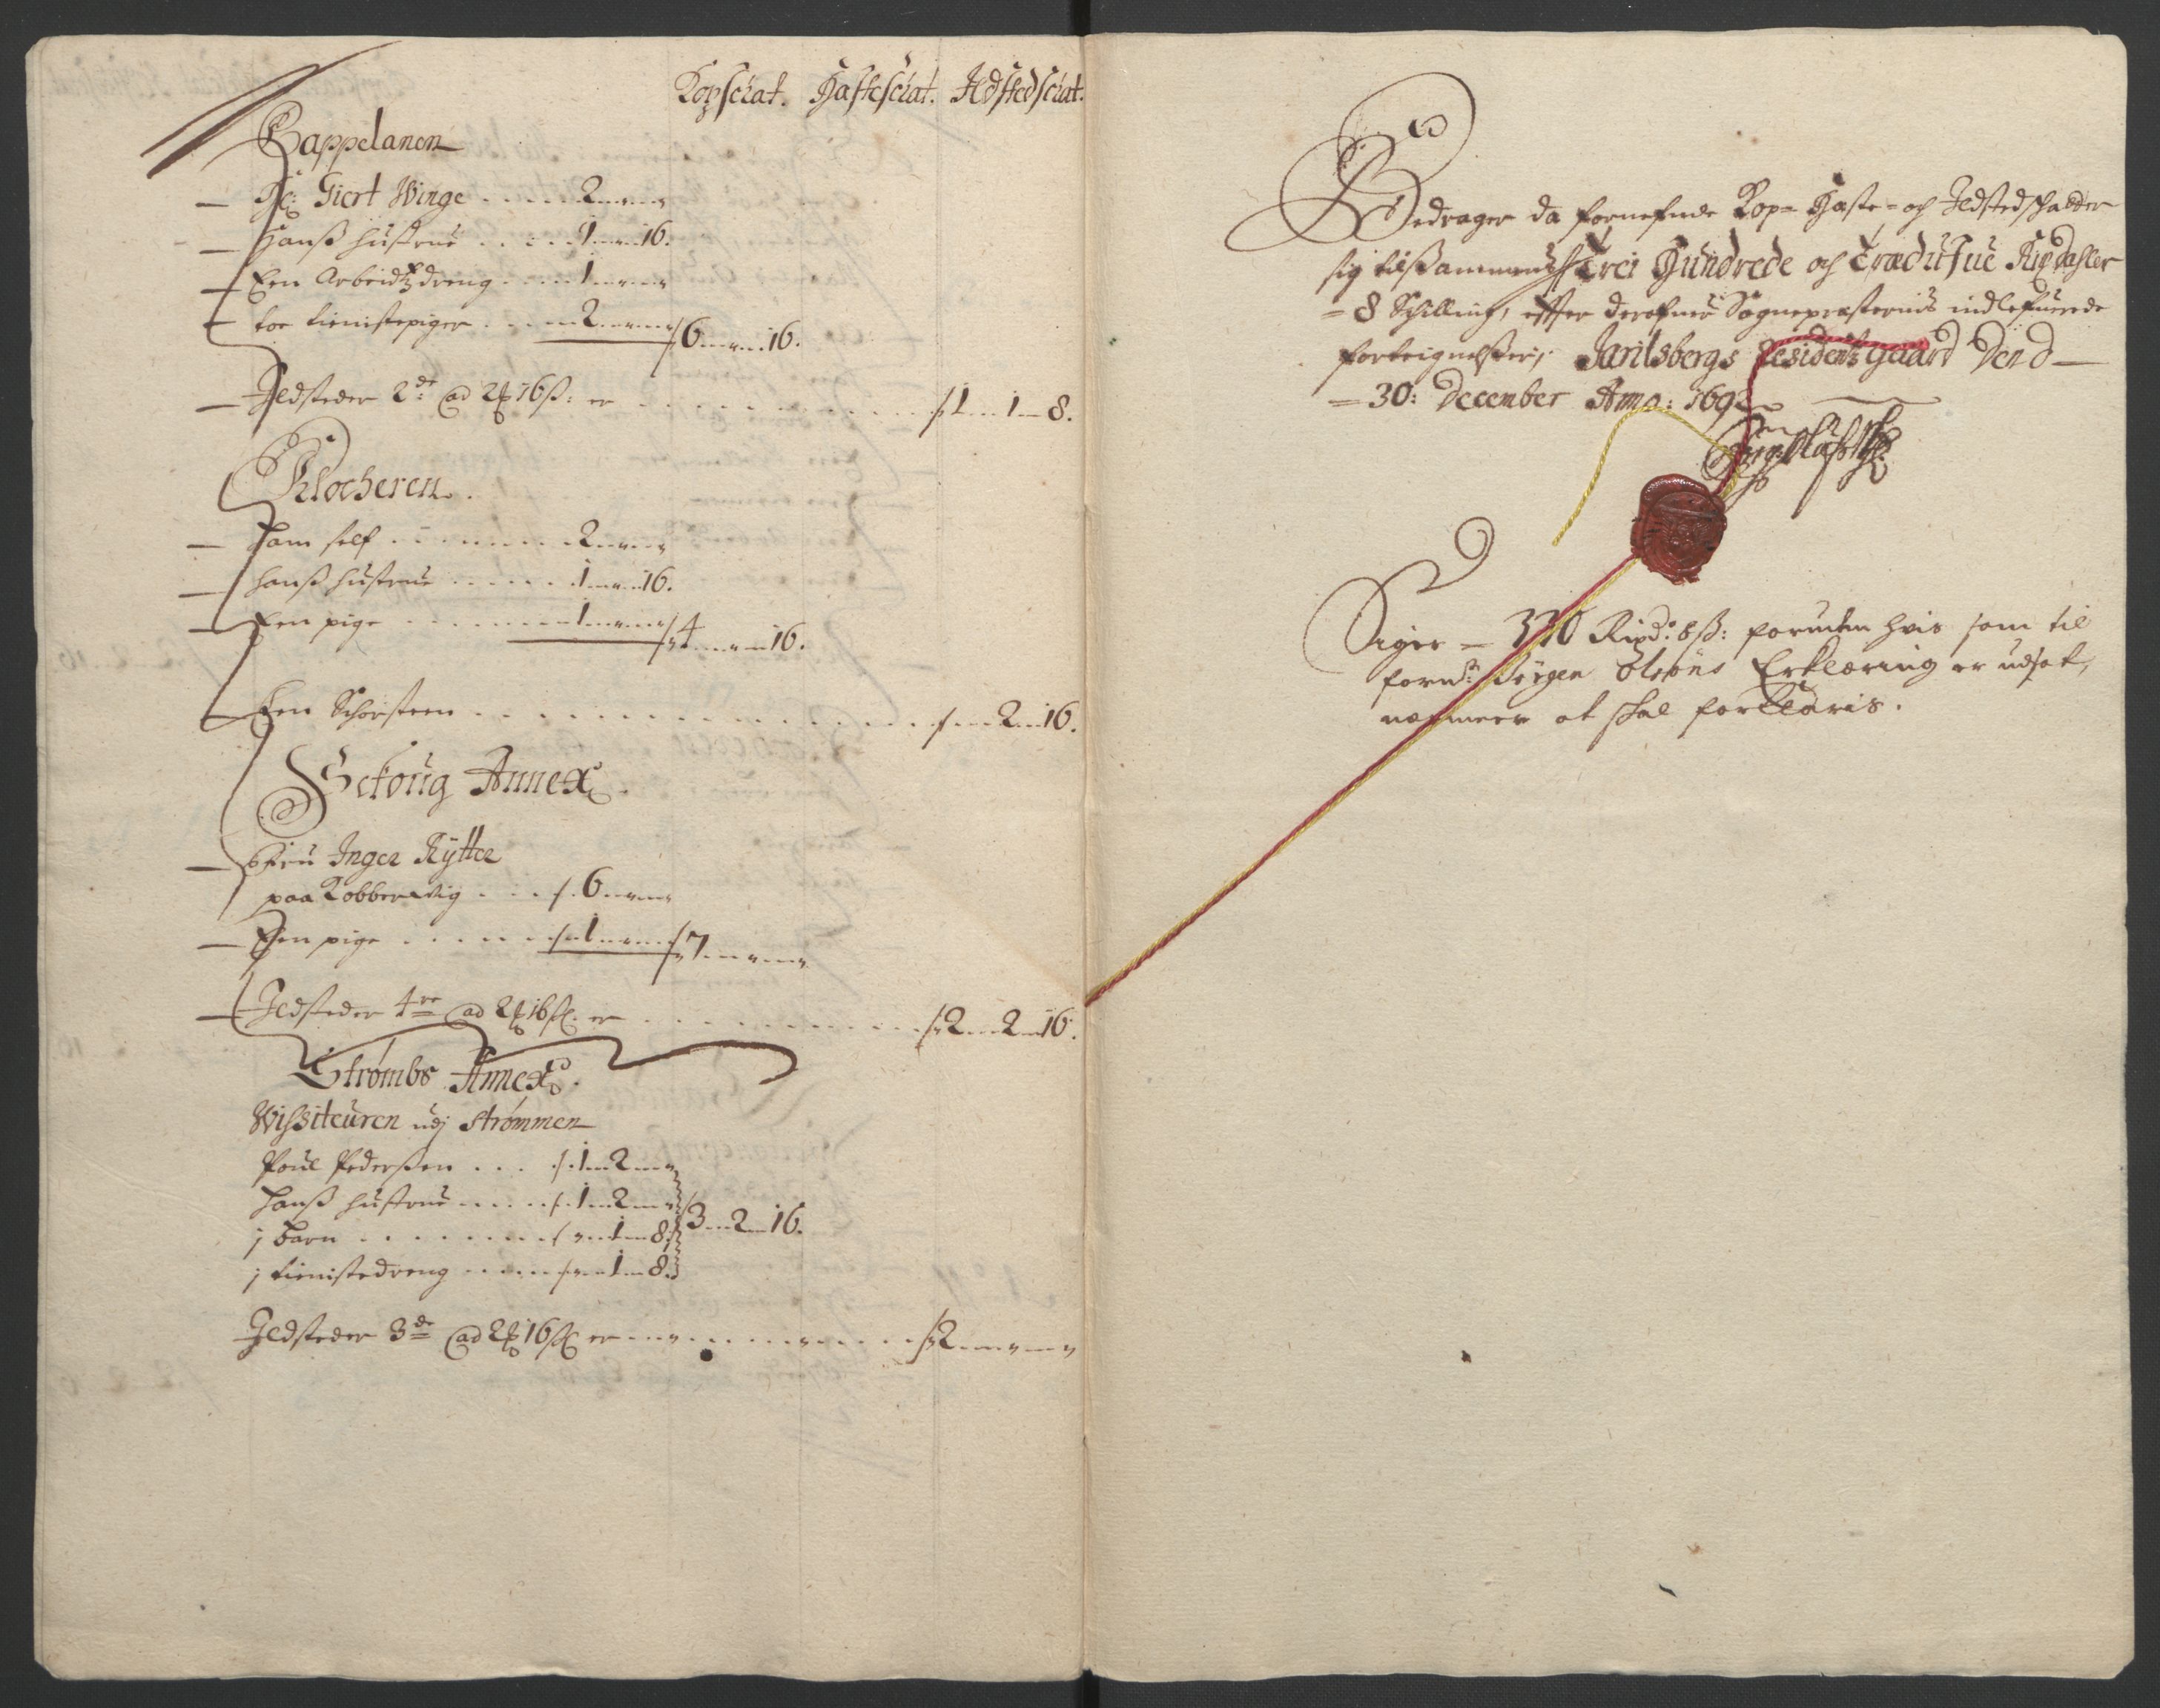 Kopschat. Hesteschat. Ildstedschat.
Cappelanen
Hr: Giert Winge . . . . . 2
Hanß hustrue . . . . 1 16.
Een Arbeidtzdreng . . . . 1
toe tienistepiger . . . . 2 6 16.
Ildsteder 2de ad 2 16ß: er . . . . 1 1 8.
Klocheren.
Ham self . . . . . . 2
hanß hustrue . . . . . 1 16.
Een pige . . . . . . 1 4 16.
Een Schorsteen . . . . . . 2 16.
Schoug Annex.
Fru Inger Rytter
paa Kobberwiig . . . 6
Een pige . . . . . 1 7
Ildsteder 4re ad 2 16ß. er . . . . 2 2 16.
Strømbs Annex.
Wißiteuren udj Strømmen
Poul Pederßen . . . 1 2
Hanß hustrue . . . . 1 2 3 2 16.
j barn . . . . . . . 1 8.
j tienistedreng . . . . 1 8.
Ildsteder 3de ad 2 16ß er . . . . 2
Bedrager da fornefnde Kop= Hæste= og Ildstedschatter
sig tilsammens Trei Hundrede og Tredifue Rixdahler
= 8 Schilling, efter derofuer Sognepræsternis indlefuerede
forteignelßer, Jarilsbergs Residentz Gaard Den d
= 30: December Anno: 1692
Siger = 330 Rixd: 8ß: foruden hvis som til
fornte Jørgen Olsøns Erklæring er udsat,
nermeer at skal forklaris.